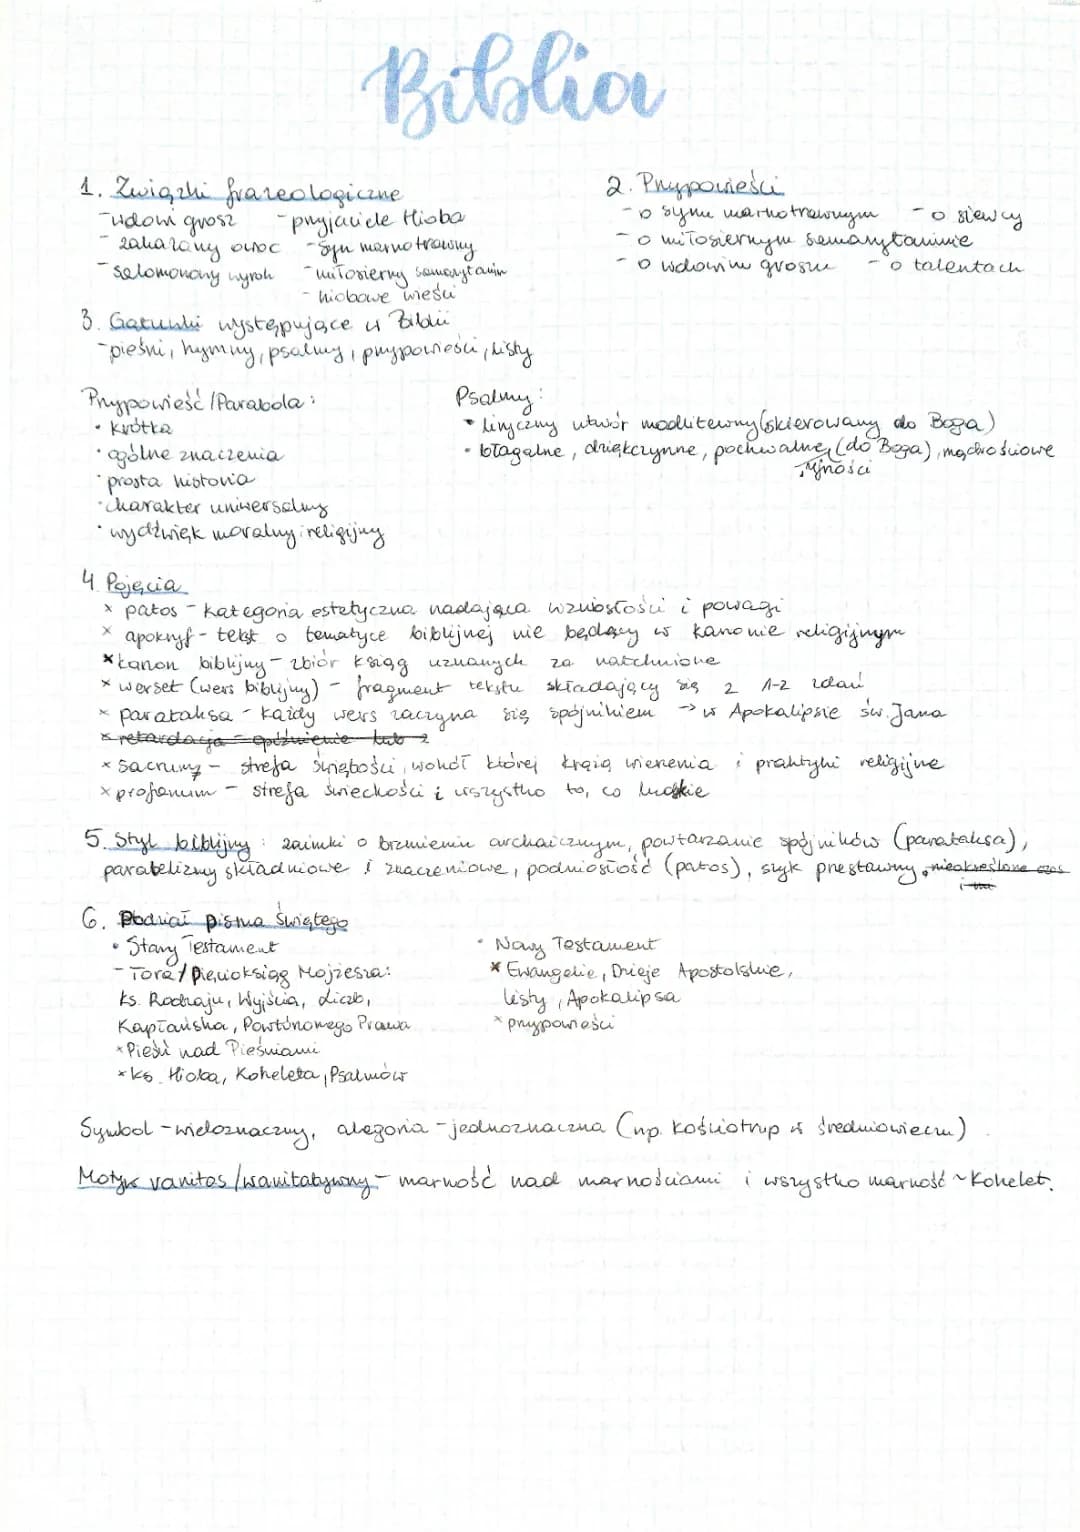 Biblia
1. Związki frazeologiczne
- wdowi grosz - przyjaciele Hioba
- zakazany owoc - syn marnotrawny
- salomonowy wyrok - miłosierny samarytanin
- hiobowe wieści
2. Przypowieści
- o synu marnotrawnym - o siewcy
- o miłosiernym samarytaninie
- o wdowim groszu - o talentach
3. Gatunki występujące w Biblii
- pieśni, hymny, psalmy, przypowieści, listy
Przypowieść/Parabola:
• krótka
• ogólne znaczenia
• prosta historia
• charakter uniwersalny
• wydźwięk moralny i religijny
Psalmy:
• liryczny utwór modlitewny (skierowany do Boga)
• błagalne, dziękczynne, pochwalne (do Boga), mądrościowe
, ufności
4. Pojęcia
x patos - kategoria estetyczna nadająca wzniosłości i powagi
x apokryf - tekst o tematyce biblijnej nie będący w kanonie religijnym
x kanon biblijny - zbiór ksiąg uznanych za natchnione
x werset (wers biblijny) - fragment tekstu składający się z 1-2 zdań
x parataksa - każdy wers zaczyna się spójnikiem → w Apokalipsie św. Jana
x retardacja - opóźnienie lub z
x sacrum - strefa świętości, wokół której krążą wierzenia i praktyki religijne
x profanum - strefa świeckości i wszystko to, co ludzkie
5. Styl biblijny: zaimki o brzmieniu archaicznym, powtarzanie spójników (parataksa),
paralelizmy składniowe i znaczeniowe, podniosłość (patos), szyk przestawny, nieokreślone czas
6. Podział pisma Świętego
• Stary Testament
- Tora/Pięcioksiąg Mojżesza:
ks. Rodzaju, Wyjścia, Liczb,
Kapłańska, Powtórzonego Prawa
x Pieśń nad Pieśniami
x ks. Hioba, Koheleta, Psalmów
• Nowy Testament
x Ewangelie, Dzieje Apostolskie,
listy, Apokalipsa
x przypowieści
Symbol - wieloznaczny, alegoria - jednoznaczna (np. kościotrup w średniowieczu)
Motyw vanitas/wanitatywny - marność nad marnościami i wszystko marność ~ Kohelet.